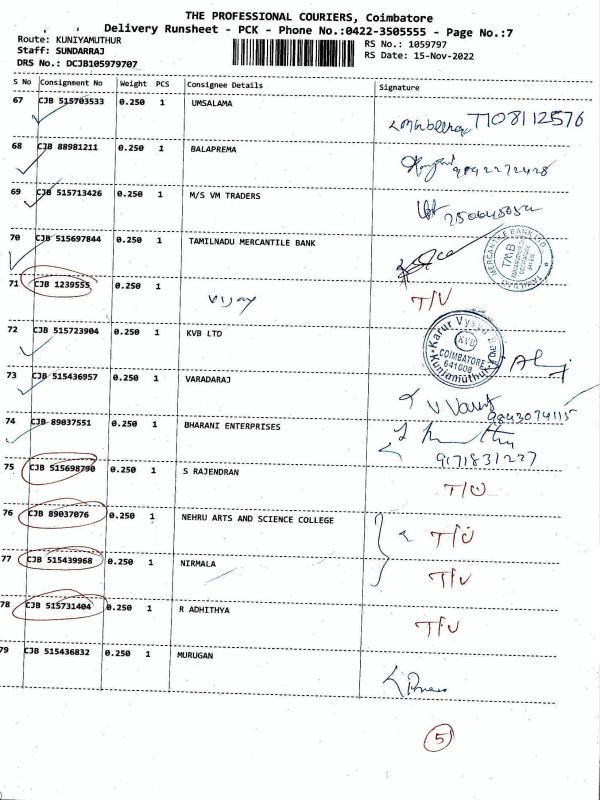 THE PROFESSIONAL COURIERS, Coimbatore
Delivery Runsheet - PCK - Phone No.:0422-3505555 - Page No.:7
Route: KUNIYAMUTHUR
RS No.: 1059797
Staff: SUNDARRAJ
RS Date: 15-Nov-2022
DRS No.: DCJB105979707
S No Consignment No Weight PCS Consignee Details Signature
67 CJB 515703533 0.250 1 UMSALAMA 7708112576
68 CJB 88981211 0.250 1 BALAPREMA
69 CJB 515713426 0.250 1 M/S VM TRADERS
70 CJB 515697844 0.250 1 TAMILNADU MERCANTILE BANK
71 CJB 1239555 0.250 1 Vijay T/U
72 CJB 515723904 0.250 1 KVB LTD KVB COIMBATORE 641008
73 CJB 515436957 0.250 1 VARADARAJ 9843074115
74 CJB 89037551 0.250 1 BHARANI ENTERPRISES 9171831227
75 CJB 515698790 0.250 1 S RAJENDRAN T/U
76 CJB 89037076 0.250 1 NEHRU ARTS AND SCIENCE COLLEGE T/U
77 CJB 515439968 0.250 1 NIRMALA T/U
78 CJB 515731404 0.250 1 R ADHITHYA T/U
79 CJB 515436832 0.250 1 MURUGAN
5